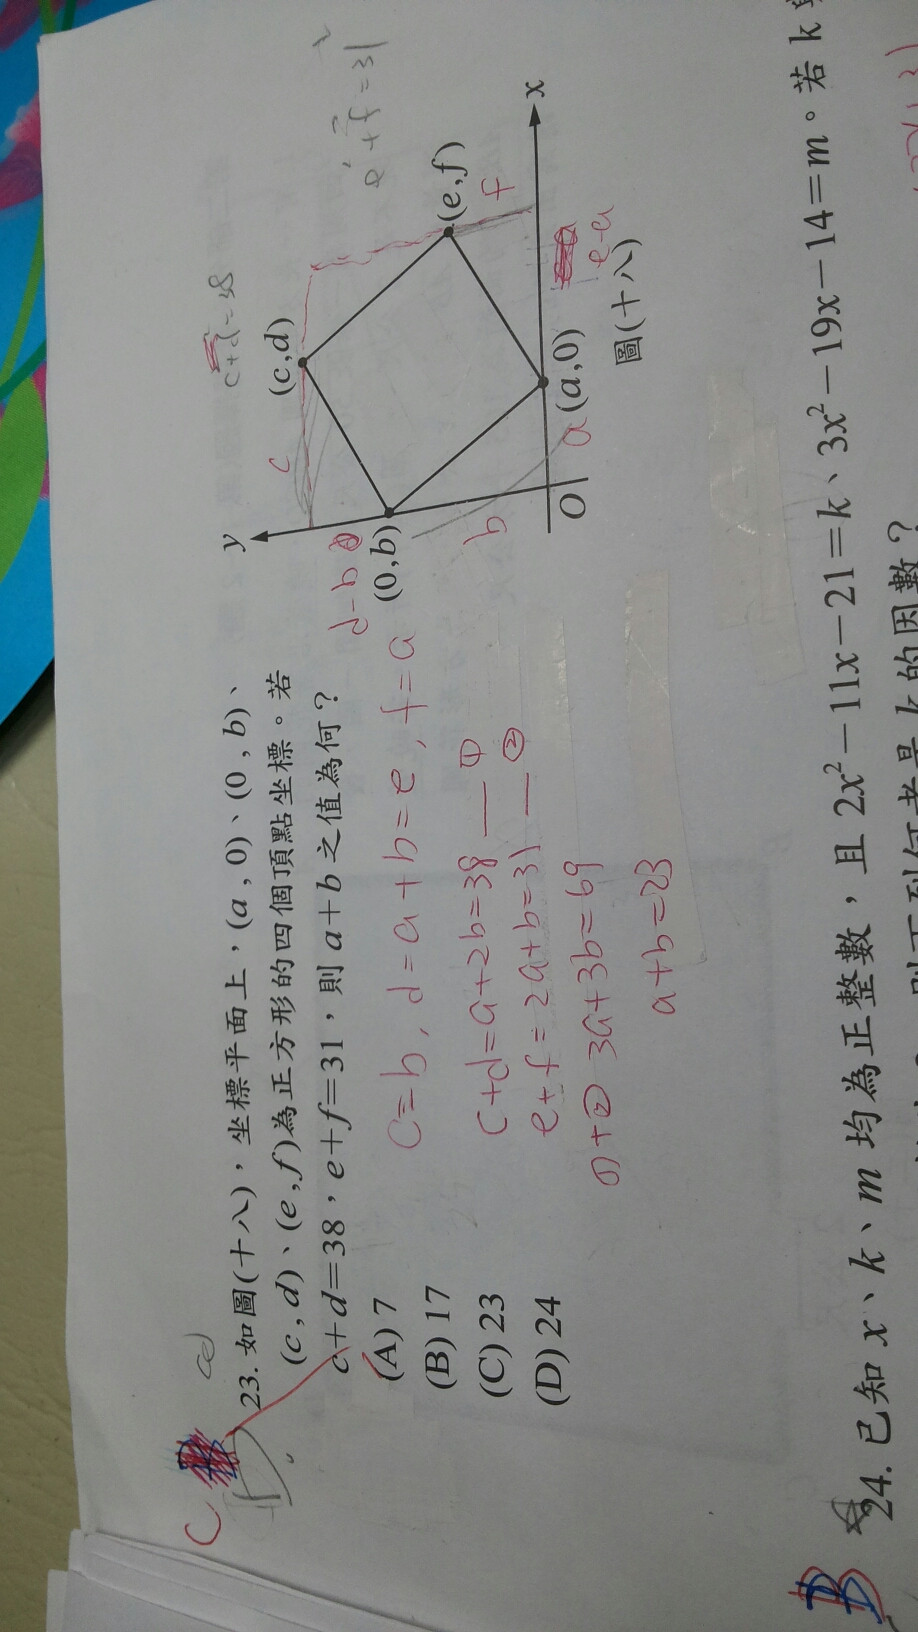 C
23. 如圖(十八)，坐標平面上，(a , 0)、(0 , b)、
(c , d)、(e , f)為正方形的四個頂點坐標。若
c＋d＝38，e＋f＝31，則 a＋b 之值為何？
(A) 7
(B) 17
(C) 23
(D) 24
C=b, d=a+b=e, f=a
c+d=a+2b=38 — ①
e+f=2a+b=31 — ②
①+② 3a+3b=69
a+b=23
c+d=38
y
c
(c,d)
d-b
(0,b)
(e,f)
f
b
x
O
a
(a,0)
e-a
圖(十八)
B
24. 已知 x、k、m 均為正整數，且 2x²－11x－21＝k、3x²－19x－14＝m。若 k
的因數？